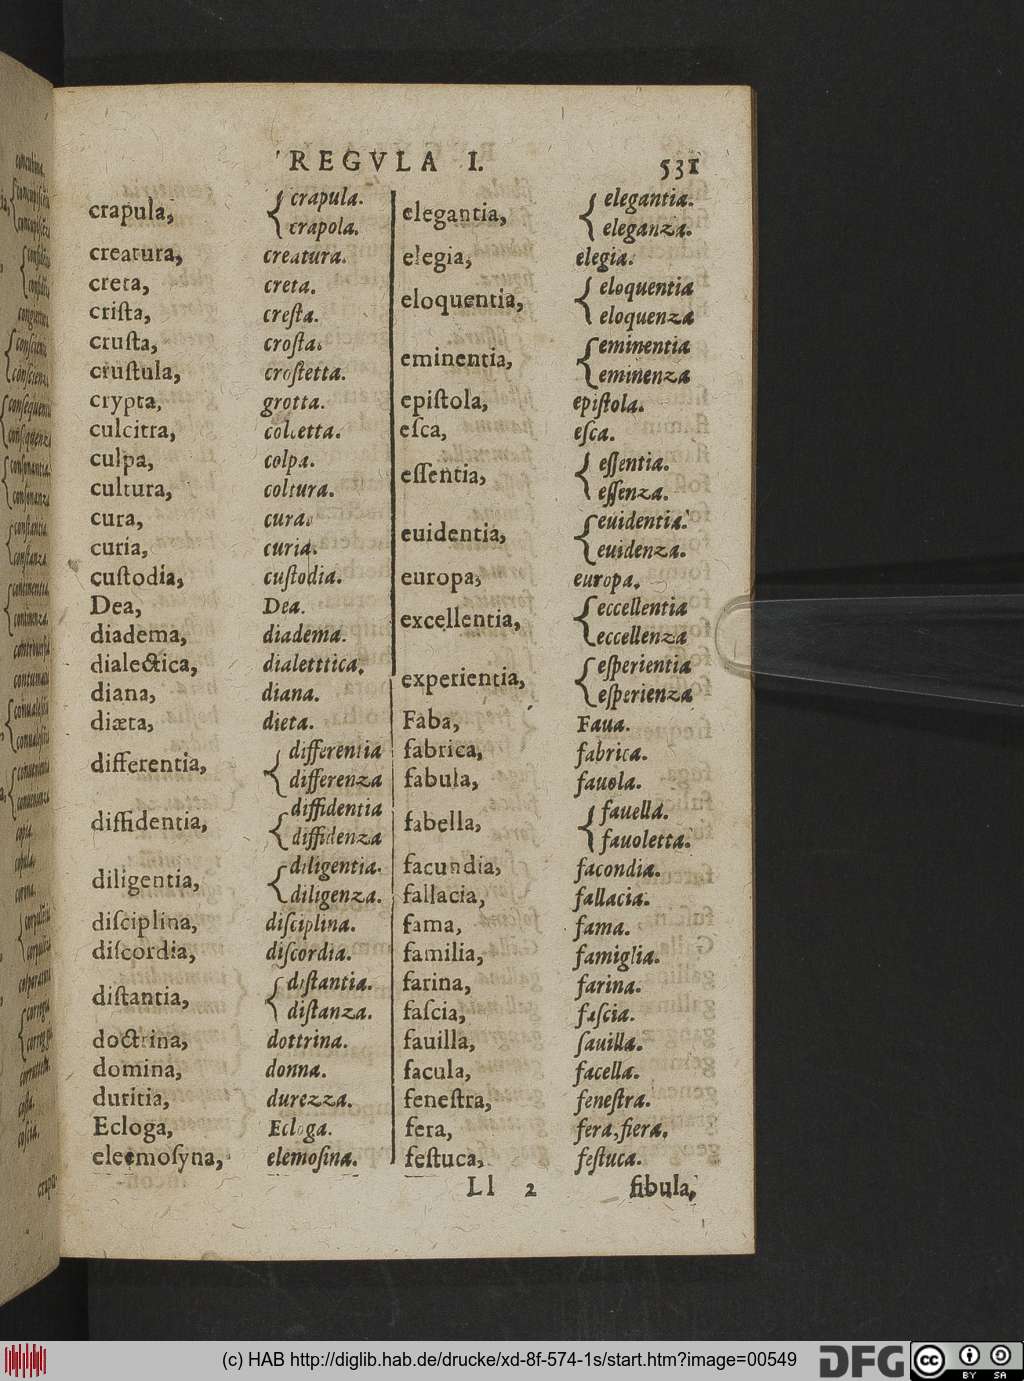 REGVLA I. 531
crapula, crapula.
crapola.
creatura, creatura.
creta, creta.
criſta, creſta.
cruſta, croſta.
cruſtula, croſtetta.
crypta, grotta.
culcitra, colcetta.
culpa, colpa.
cultura, coltura.
cura, cura.
curia, curia.
cuſtodia, cuſtodia.
Dea, Dea.
diadema, diadema.
dialectica, dialetttica.
diana, diana.
diæta, dieta.
differentia, differentia
differenza
diffidentia, diffidentia
diffidenza
diligentia, diligentia.
diligenza.
diſciplina, diſciplina.
diſcordia, diſcordia.
diſtantia, diſtantia.
diſtanza.
doctrina, dottrina.
domina, donna.
duritia, durezza.
Ecloga, Ecloga.
eleemoſyna, elemoſina.
elegantia, elegantia.
eleganza.
elegia, elegia.
eloquentia, eloquentia
eloquenza
eminentia, eminentia
eminenza
epiſtola, epiſtola.
eſca, eſca.
eſſentia, eſſentia.
eſſenza.
euidentia, euidentia.
euidenza.
europa, europa.
excellentia, eccellentia
eccellenza
experientia, eſperientia
eſperienza
Faba, Faua.
fabrica, fabrica.
fabula, fauola.
fabella, fauella.
fauoletta.
facundia, facondia.
fallacia, fallacia.
fama, fama.
familia, famiglia.
farina, farina.
faſcia, faſcia.
fauilla, ſauilla.
facula, facella.
feneſtra, feneſtra.
fera, fera, fiera.
feſtuca, feſtuca.
Ll 2 fibula,
(c) HAB http://diglib.hab.de/drucke/xd-8f-574-1s/start.htm?image=00549
DFG
cc BY SA